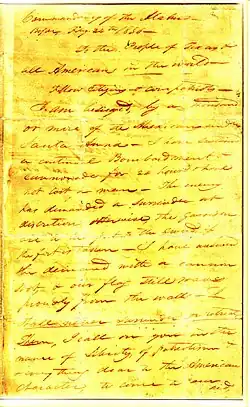 Commandancy of the Alamo
Bejar, Feby. 24th 1836
To the People of Texas &
all Americans in the world
Fellow Citizens & compatriots
I am besieged, by a thousand
or more of the Mexicans under
Santa Anna - I have sustained
a continual Bombardment &
cannonade for 24 hours & have
not lost a man - The enemy
has demanded a surrender at
discretion, otherwise, the garrison
are to be put to the sword, if
the fort is taken - I have answered
the demand with a cannon
shot, & our flag still waves
proudly from the wall - I
shall never surrender or retreat
Then, I call on you in the
name of Liberty, of patriotism &
every thing dear to the American
character, to come to our
aid